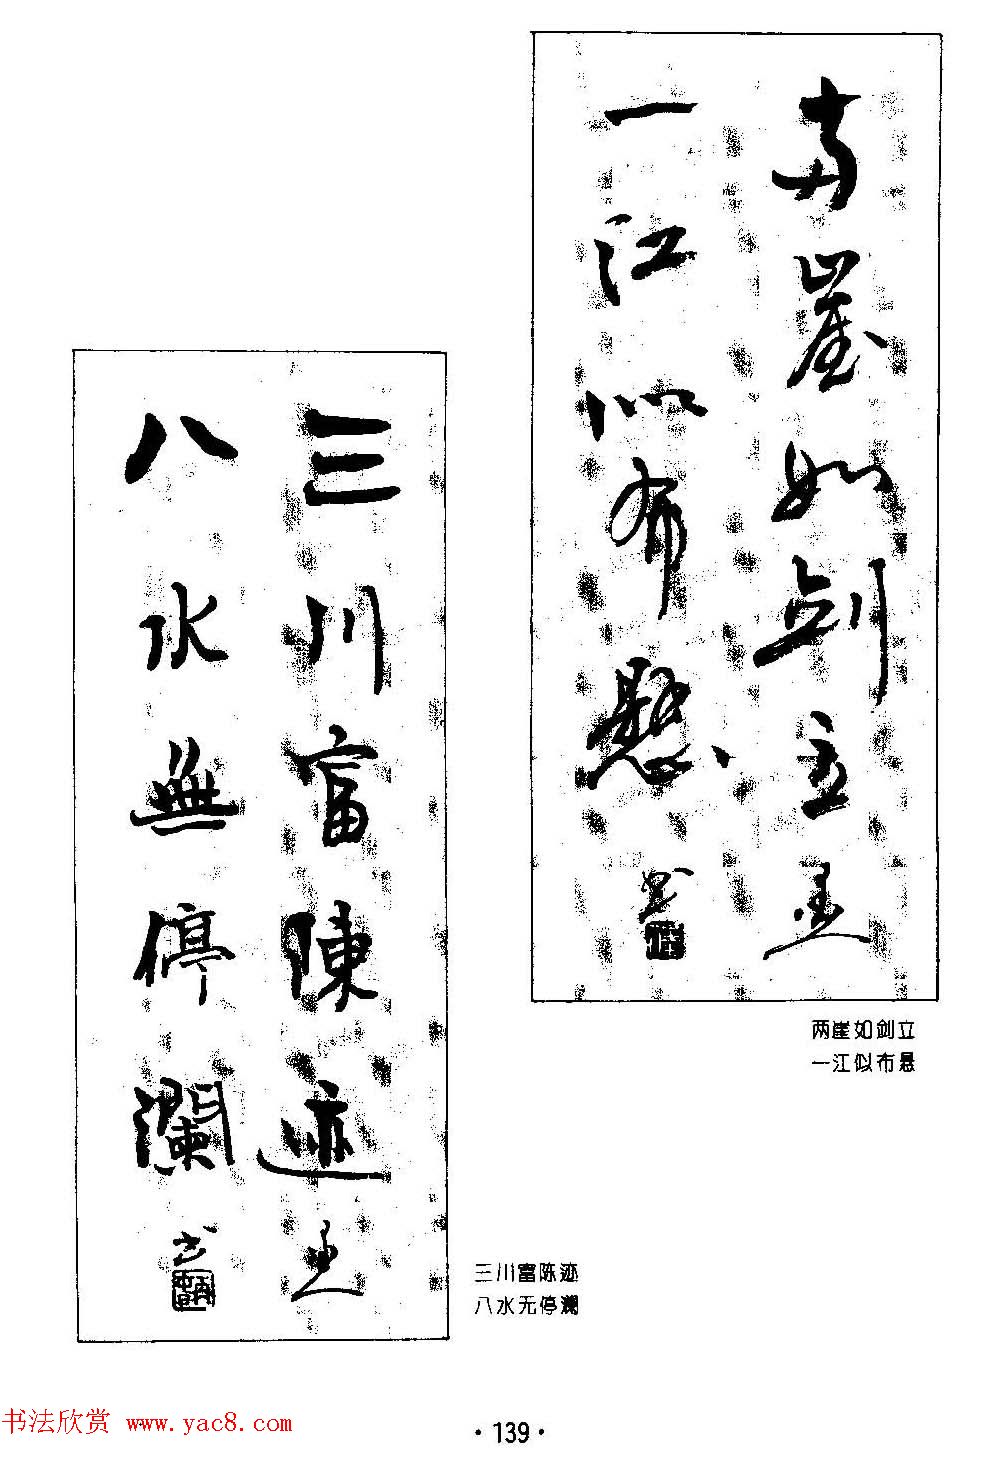 两崖如劍立
一江似布懸
书
两崖如剑立
一江似布悬
三川富陳迹
八水無停瀾
书
三川富陈迹
八水无停澜
书法欣赏 www.yac8.com
·139·